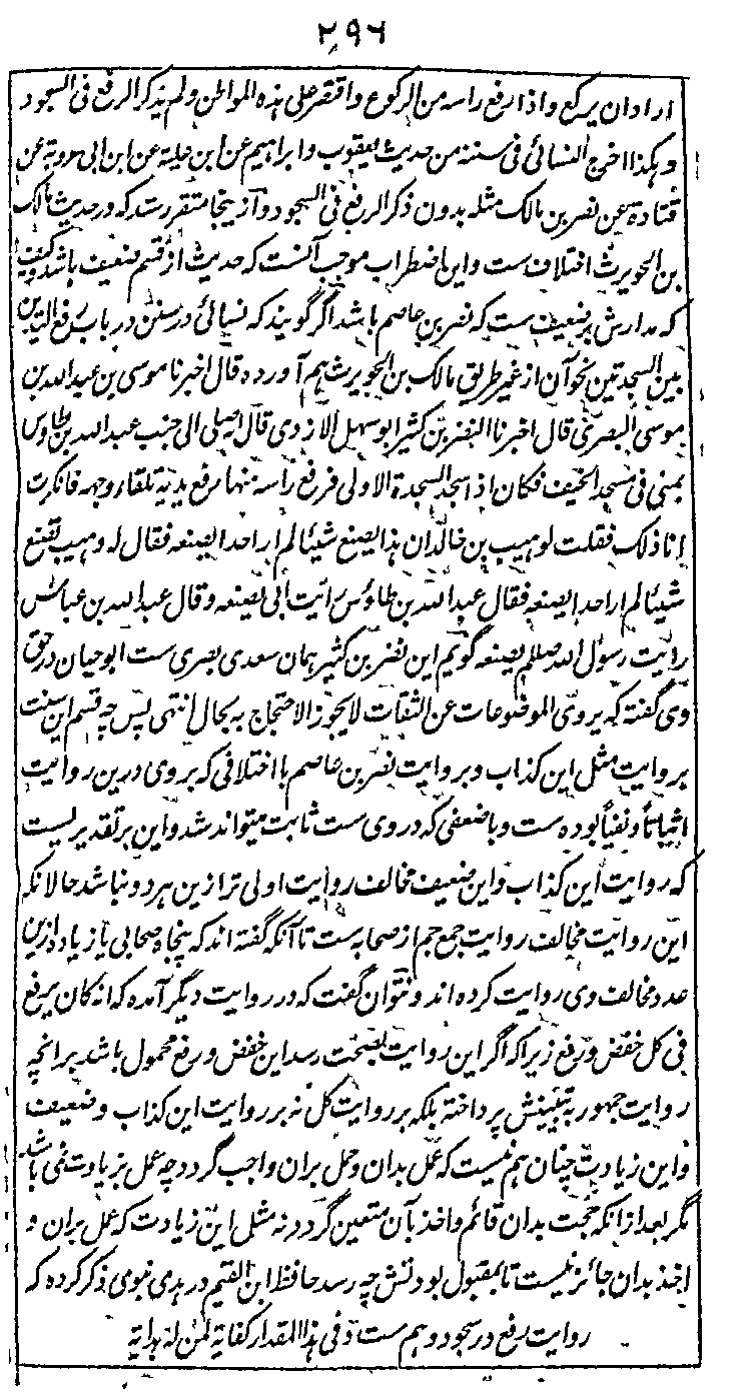 ۲۹۶
ارادان یرکع واذا رفع راسه من الرکوع واقتصر علی هذه المواطن ولم یذکر الرفع فی السجود
وهکذا اخرج النسائی فی سننه من حدیث یعقوب وابراهیم عن ابن علیه عن ابن ابی عروبة عن
قتادة عن نصر بن مالک مثله بدون ذکر الرفع فی السجود وازینجا متقرر شد که در حدیث مالک
بن الحویرث اختلاف ست واین اضطراب موجب آنست که حدیث از قسم ضعیف باشد وکیف
که مدارش بر ضعیف ست که نصر بن عاصم باشد اگر گویند که نسائی در سنن در باب رفع الیدین
بین السجدتین نحو آن از غیر طریق مالک بن الحویرث هم آورده قال اخبرنا موسی بن عبدالله بن
موسی البصری قال اخبرنا النضر بن کثیر ابو سهل الازدی قال صلی الی جنب عبدالله بن طاوس
بمنی فی مسجد الخیف فکان اذا سجد السجدة الاولی فرفع راسه منها رفع یدیه تلقاء وجهه فانکرت
انا ذلک فقلت لوهیب بن خالد ان هذا یصنع شیئا لم ار احدا یصنعه فقال له وهیب تصنع
شیئا لم ار احدا یصنعه فقال عبدالله بن طاوس رایت ابی یصنعه وقال عبدالله بن عباس
رایت رسول الله صلعم یصنعه گویم این نضر بن کثیر همان سعدی بصری ست ابو حیان در حق
وی گفته که یروی الموضوعات عن الثقات لا یجوز الاحتجاج به بحال انتهی پس چه قسم این سنت
بروایت مثل این کذاب وبروایت نصر بن عاصم با اختلافی که بر وی درین روایت
اثباتاً ونفیاً بوده ست وبا ضعفی که در وی ست ثابت میتواند شد واین بر تقدیریست
که روایت این کذاب واین ضعیف مخالف روایت اولی تر ازین هر دو نباشد حالانکه
این روایت مخالف روایت جمع جم از صحابه ست تا آنکه گفته اند که پنجاه صحابی یا زیاده ازین
عدد مخالف وی روایت کرده اند ونتوان گفت که در روایت دیگر آمده که انه کان یرفع
فی کل خفض ورفع زیرا که اگر این روایت بصحت رسد این خفض ورفع محمول باشد بر انچه
روایت جمهور به تبیینش پرداخته بلکه بر روایت کل نه بر روایت این کذاب وضعیف
واین زیادت چنان هم نیست که عمل بدان وحمل بران واجب گردد چه عمل بزیادت نمی باشد
مگر بعد ازانکه حجت بدان قائم واخذ بآن متعین گردد نه مثل این زیادت که عمل بران و
اخذ بدان جائز نیست تا بمقبول بودنش چه رسد حافظ ابن القیم در هدی نبوی ذکر کرده که
روایت رفع در سجود وهم ست وفی هذا المقدار کفایة لمن له هدایة